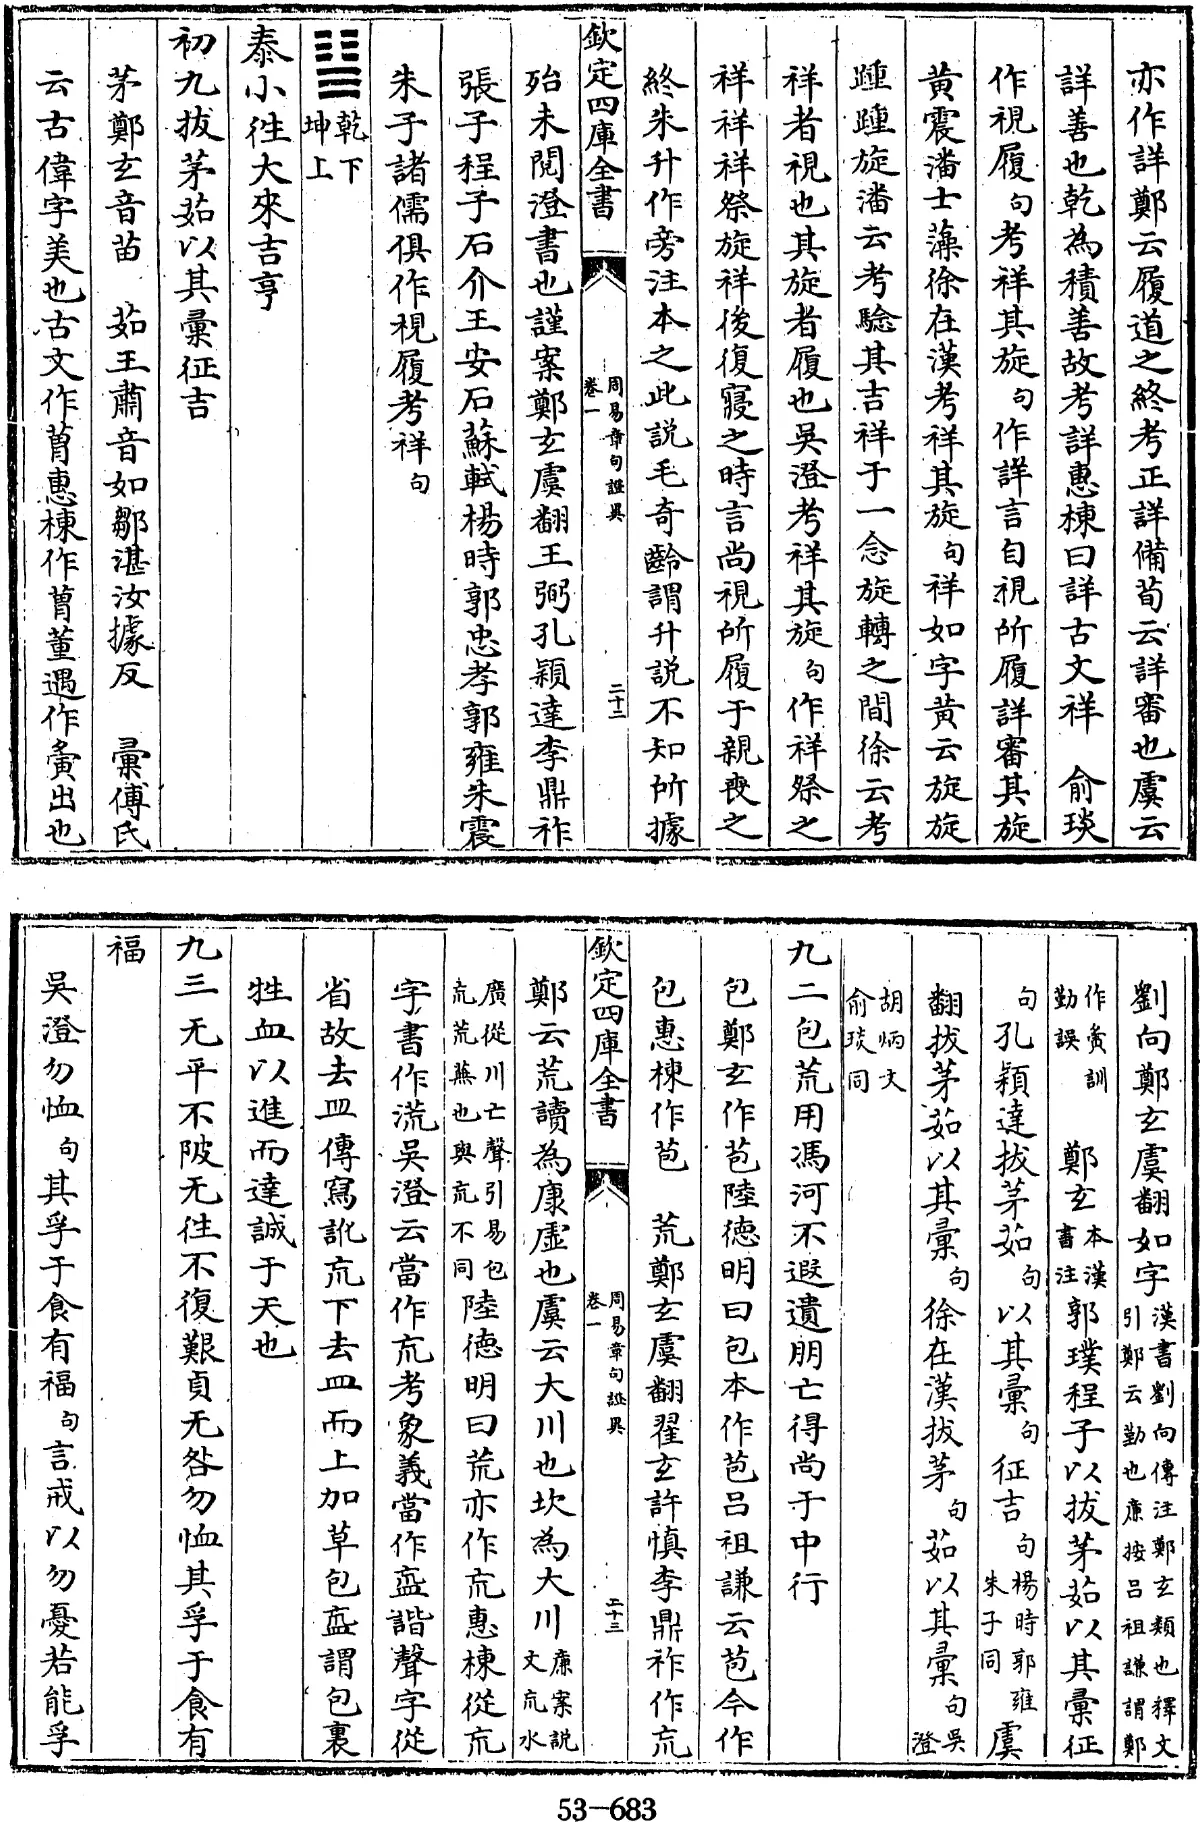 亦作詳鄭云履道之終考正詳備荀云詳審也虞云
詳善也乾為積善故考詳惠棟曰詳古文祥　俞琰
作視履句考祥其旋句作詳言自視所履詳審其旋
黃震潘士藻徐在漢考祥其旋句祥如字黃云旋旋
踵踵旋潘云考驗其吉祥于一念旋轉之間徐云考
祥者視也其旋者履也吳澄考祥其旋句作祥祭之
祥祥祭旋祥後復寢之時言尚視所履于親喪之
終朱升作旁注本之此說毛奇齡謂升說不知所據
欽定四庫全書
周易章句證異
卷一
二十二
殆未閱澄書也謹案鄭玄虞翻王弼孔穎達李鼎祚
張子程子石介王安石蘇軾楊時郭忠孝郭雍朱震
朱子諸儒俱作視履考祥句
乾下
坤上
泰小徃大來吉亨
初九拔茅茹以其彙征吉
茅鄭玄音苗　茹王肅音如鄒湛汝據反　彙傅氏
云古偉字美也古文作𦳊惠棟作𦳊董遇作夤出也
劉向鄭玄虞翻如字漢書劉向傳注鄭玄類也釋文
引鄭云勤也廉按呂祖謙謂鄭
作夤訓
勤誤　鄭玄本漢
書注郭璞程子以拔茅茹以其彙征
句孔穎達拔茅茹句以其彙句征吉句楊時郭雍
朱子同虞
翻拔茅茹以其彙句徐在漢拔茅句茹以其彙句吳
澄
胡炳文
俞琰同
九二包荒用馮河不遐遺朋亡得尚于中行
包鄭玄作苞陸德明曰包本作苞呂祖謙云苞今作
包惠棟作苞　荒鄭玄虞翻翟玄許慎李鼎祚作巟
欽定四庫全書
周易章句證異
卷一
二十三
鄭云荒讀為康虛也虞云大川也坎為大川廉案說
文巟水
廣從川亡聲引易包
巟荒蕪也與巟不同陸德明曰荒亦作巟惠棟從巟
字書作㡃吳澄云當作巟考象義當作衁諧聲字從
省故去皿傳寫訛巟下去皿而上加草包衁謂包裹
牲血以進而達誠于天也
九三无平不陂无徃不復艱貞无咎勿恤其孚于食有
福
吳澄勿恤句其孚于食有福句言戒以勿憂若能孚
53—683